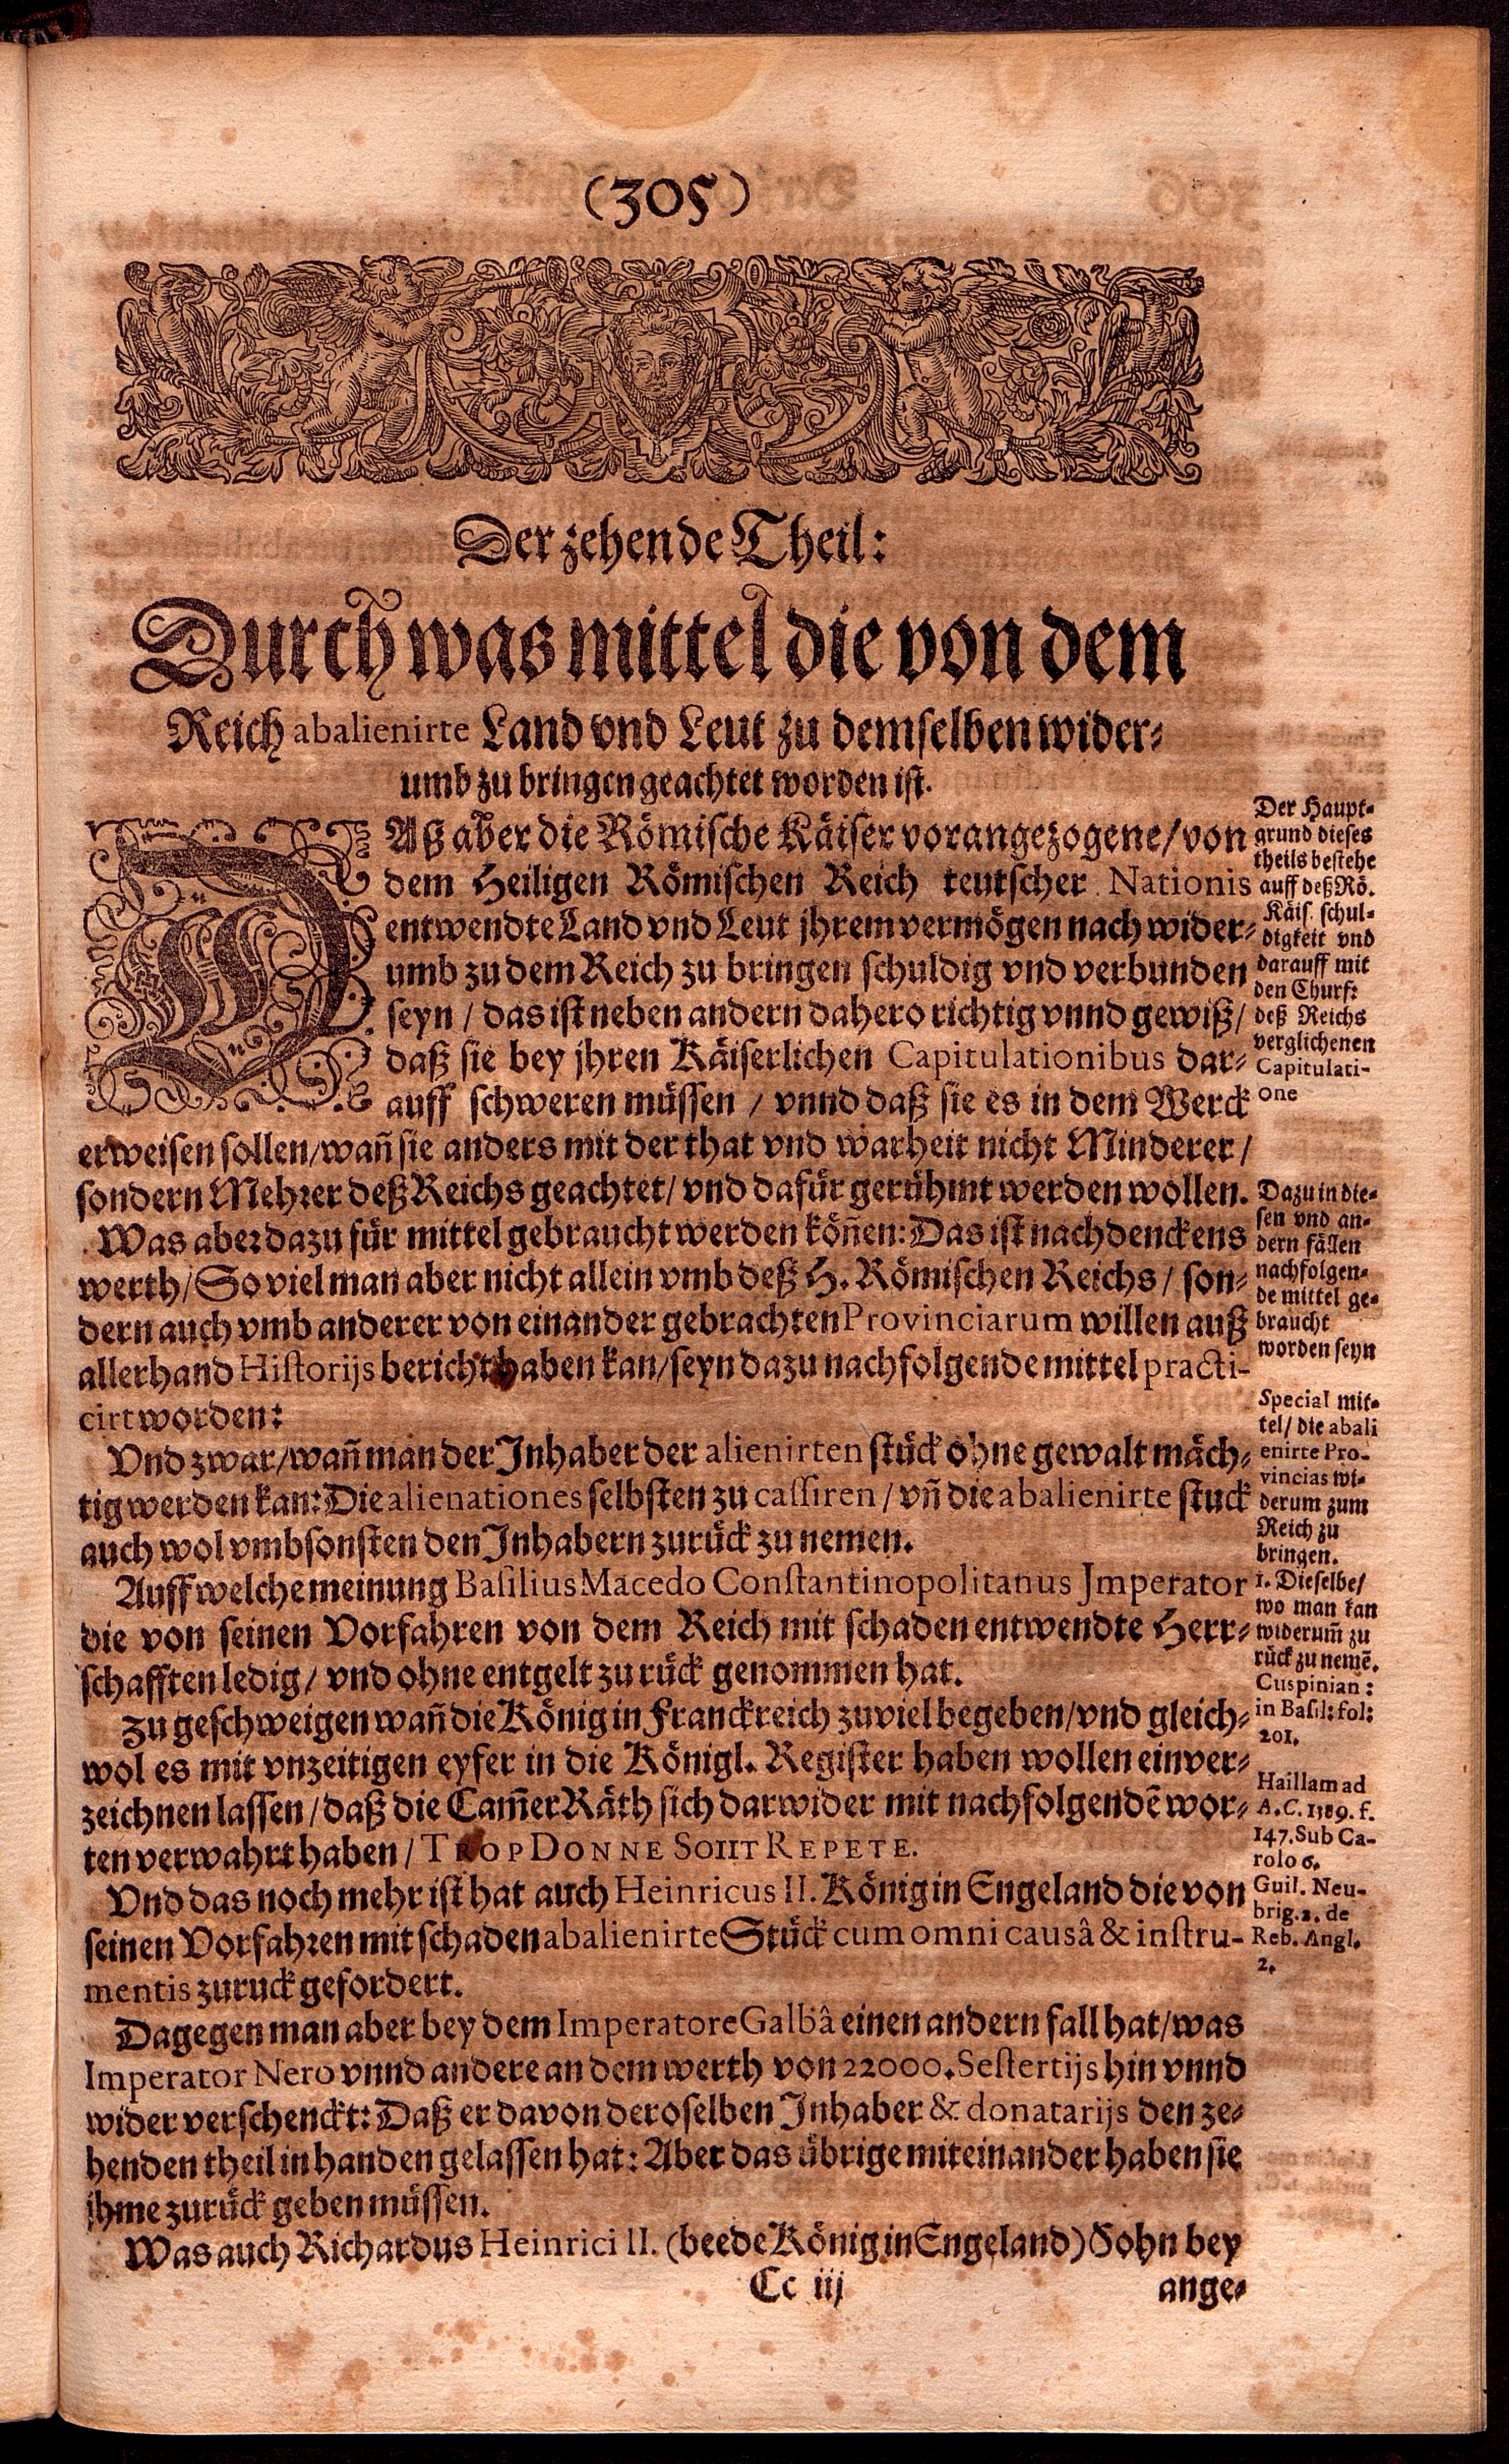 (305)
Der zehende Theil:
Durch was mittel die von dem
Reich abalienirte Land vnd Leut zu demselben wider-
umb zu bringen geachtet worden ist.
DAß aber die Römische Käiser vorangezogene/ von
dem Heiligen Römischen Reich teutscher Nationis
entwendte Land vnd Leut jhrem vermögen nach wider-
umb zu dem Reich zu bringen schuldig vnd verbunden
seyn / das ist neben andern dahero richtig vnnd gewiß/
daß sie bey jhren Käiserlichen Capitulationibus dar-
auff schweren müssen / vnnd daß sie es in dem Werck
erweisen sollen/wañ sie anders mit der that vnd warheit nicht Minderer /
sondern Mehrer deß Reichs geachtet/ vnd dafür gerühmt werden wollen.
Was aber dazu für mittel gebraucht werden köñen: Das ist nachdenckens
werth/ So viel man aber nicht allein vmb deß H. Römischen Reichs / son-
dern auch vmb anderer von einander gebrachten Provinciarum willen auß
allerhand Historijs bericht haben kan/seyn dazu nachfolgende mittel practi-
cirt worden:
Vnd zwar/wañ man der Inhaber der alienirten stück ohne gewalt mäch-
tig werden kan: Die alienationes selbsten zu cassiren / vñ die abalienirte stuck
auch wol vmbsonsten den Inhabern zurück zu nemen.
Auff welche meinung Basilius Macedo Constantinopolitanus Jmperator
die von seinen Vorfahren von dem Reich mit schaden entwendte Herr-
schafften ledig/ vnd ohne entgelt zu rück genommen hat.
Zu geschweigen wañ die König in Franckreich zuviel begeben/vnd gleich-
wol es mit vnzeitigen eyfer in die Königl. Register haben wollen einver-
zeichnen lassen / daß die Cam̃er Räth sich darwider mit nachfolgendẽ wor-
ten verwahrt haben / TROP DONNE SOIIT REPETE.
Vnd das noch mehr ist hat auch Heinricus II. König in Engeland die von
seinen Vorfahren mit schaden abalienirte Stück cum omni causâ & instru-
mentis zuruck gefordert.
Dagegen man aber bey dem Imperatore Galbâ einen andern fall hat/was
Imperator Nero vnnd andere an dem werth von 22000. Sestertijs hin vnnd
wider verschenckt: Daß er davon deroselben Inhaber & donatarijs den ze-
henden theil in handen gelassen hat: Aber das übrige miteinander haben sie
jhme zurück geben müssen.
Was auch Richardus Heinrici II. (beede König in Engeland) Sohn bey
Cc iij
ange-
Der Haupt-
grund dieses
theils bestehe
auff deß Rö.
Käis. schul-
digkeit vnd
darauff mit
den Churf:
deß Reichs
verglichenen
Capitulati-
one
Dazu in die-
sen vnd an-
dern fällen
nachfolgen-
de mittel ge-
braucht
worden seyn
Special mit-
tel/ die abali
enirte Pro-
vincias wi-
derum zum
Reich zu
bringen.
1. Dieselbe/
wo man kan
widerum̃ zu
rück zu nemẽ.
Cuspinian:
in Basil: fol:
201.
Haillam ad
A.C. 1389. f.
147. Sub Ca-
rolo 6.
Guil. Neu-
brig. 2. de
Reb. Angl.
2.